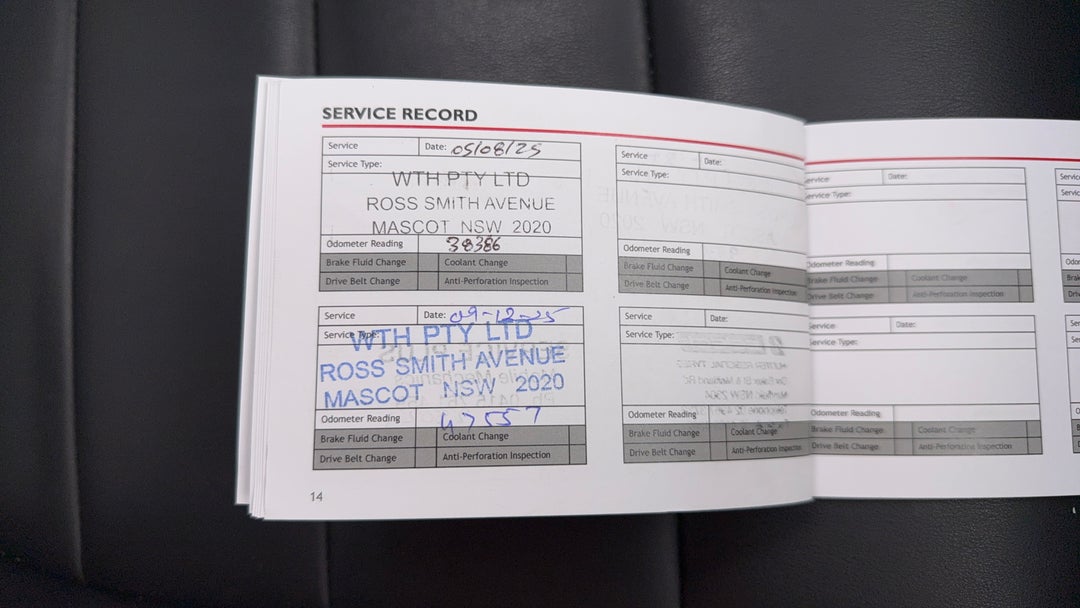 SERVICE RECORD
Service Date: 05/08/25
Service Type:
WTH PTY LTD
ROSS SMITH AVENUE
MASCOT NSW 2020
Odometer Reading 38386
Brake Fluid Change Coolant Change
Drive Belt Change Anti-Perforation Inspection
Service Date: 09-12-25
Service Type:
WTH PTY LTD
ROSS SMITH AVENUE
MASCOT NSW 2020
Odometer Reading 47557
Brake Fluid Change Coolant Change
Drive Belt Change Anti-Perforation Inspection
14
Service Date:
Service Type:
Odometer Reading
Brake Fluid Change Coolant Change
Drive Belt Change Anti-Perforation Inspection
Service Date:
Service Type:
Odometer Reading
Brake Fluid Change Coolant Change
Drive Belt Change Anti-Perforation Inspection
Service Date:
Service Type:
Odometer Reading
Brake Fluid Change Coolant Change
Drive Belt Change Anti-Perforation Inspection
Service Date:
Service Type:
Odometer Reading
Brake Fluid Change Coolant Change
Drive Belt Change Anti-Perforation Inspection